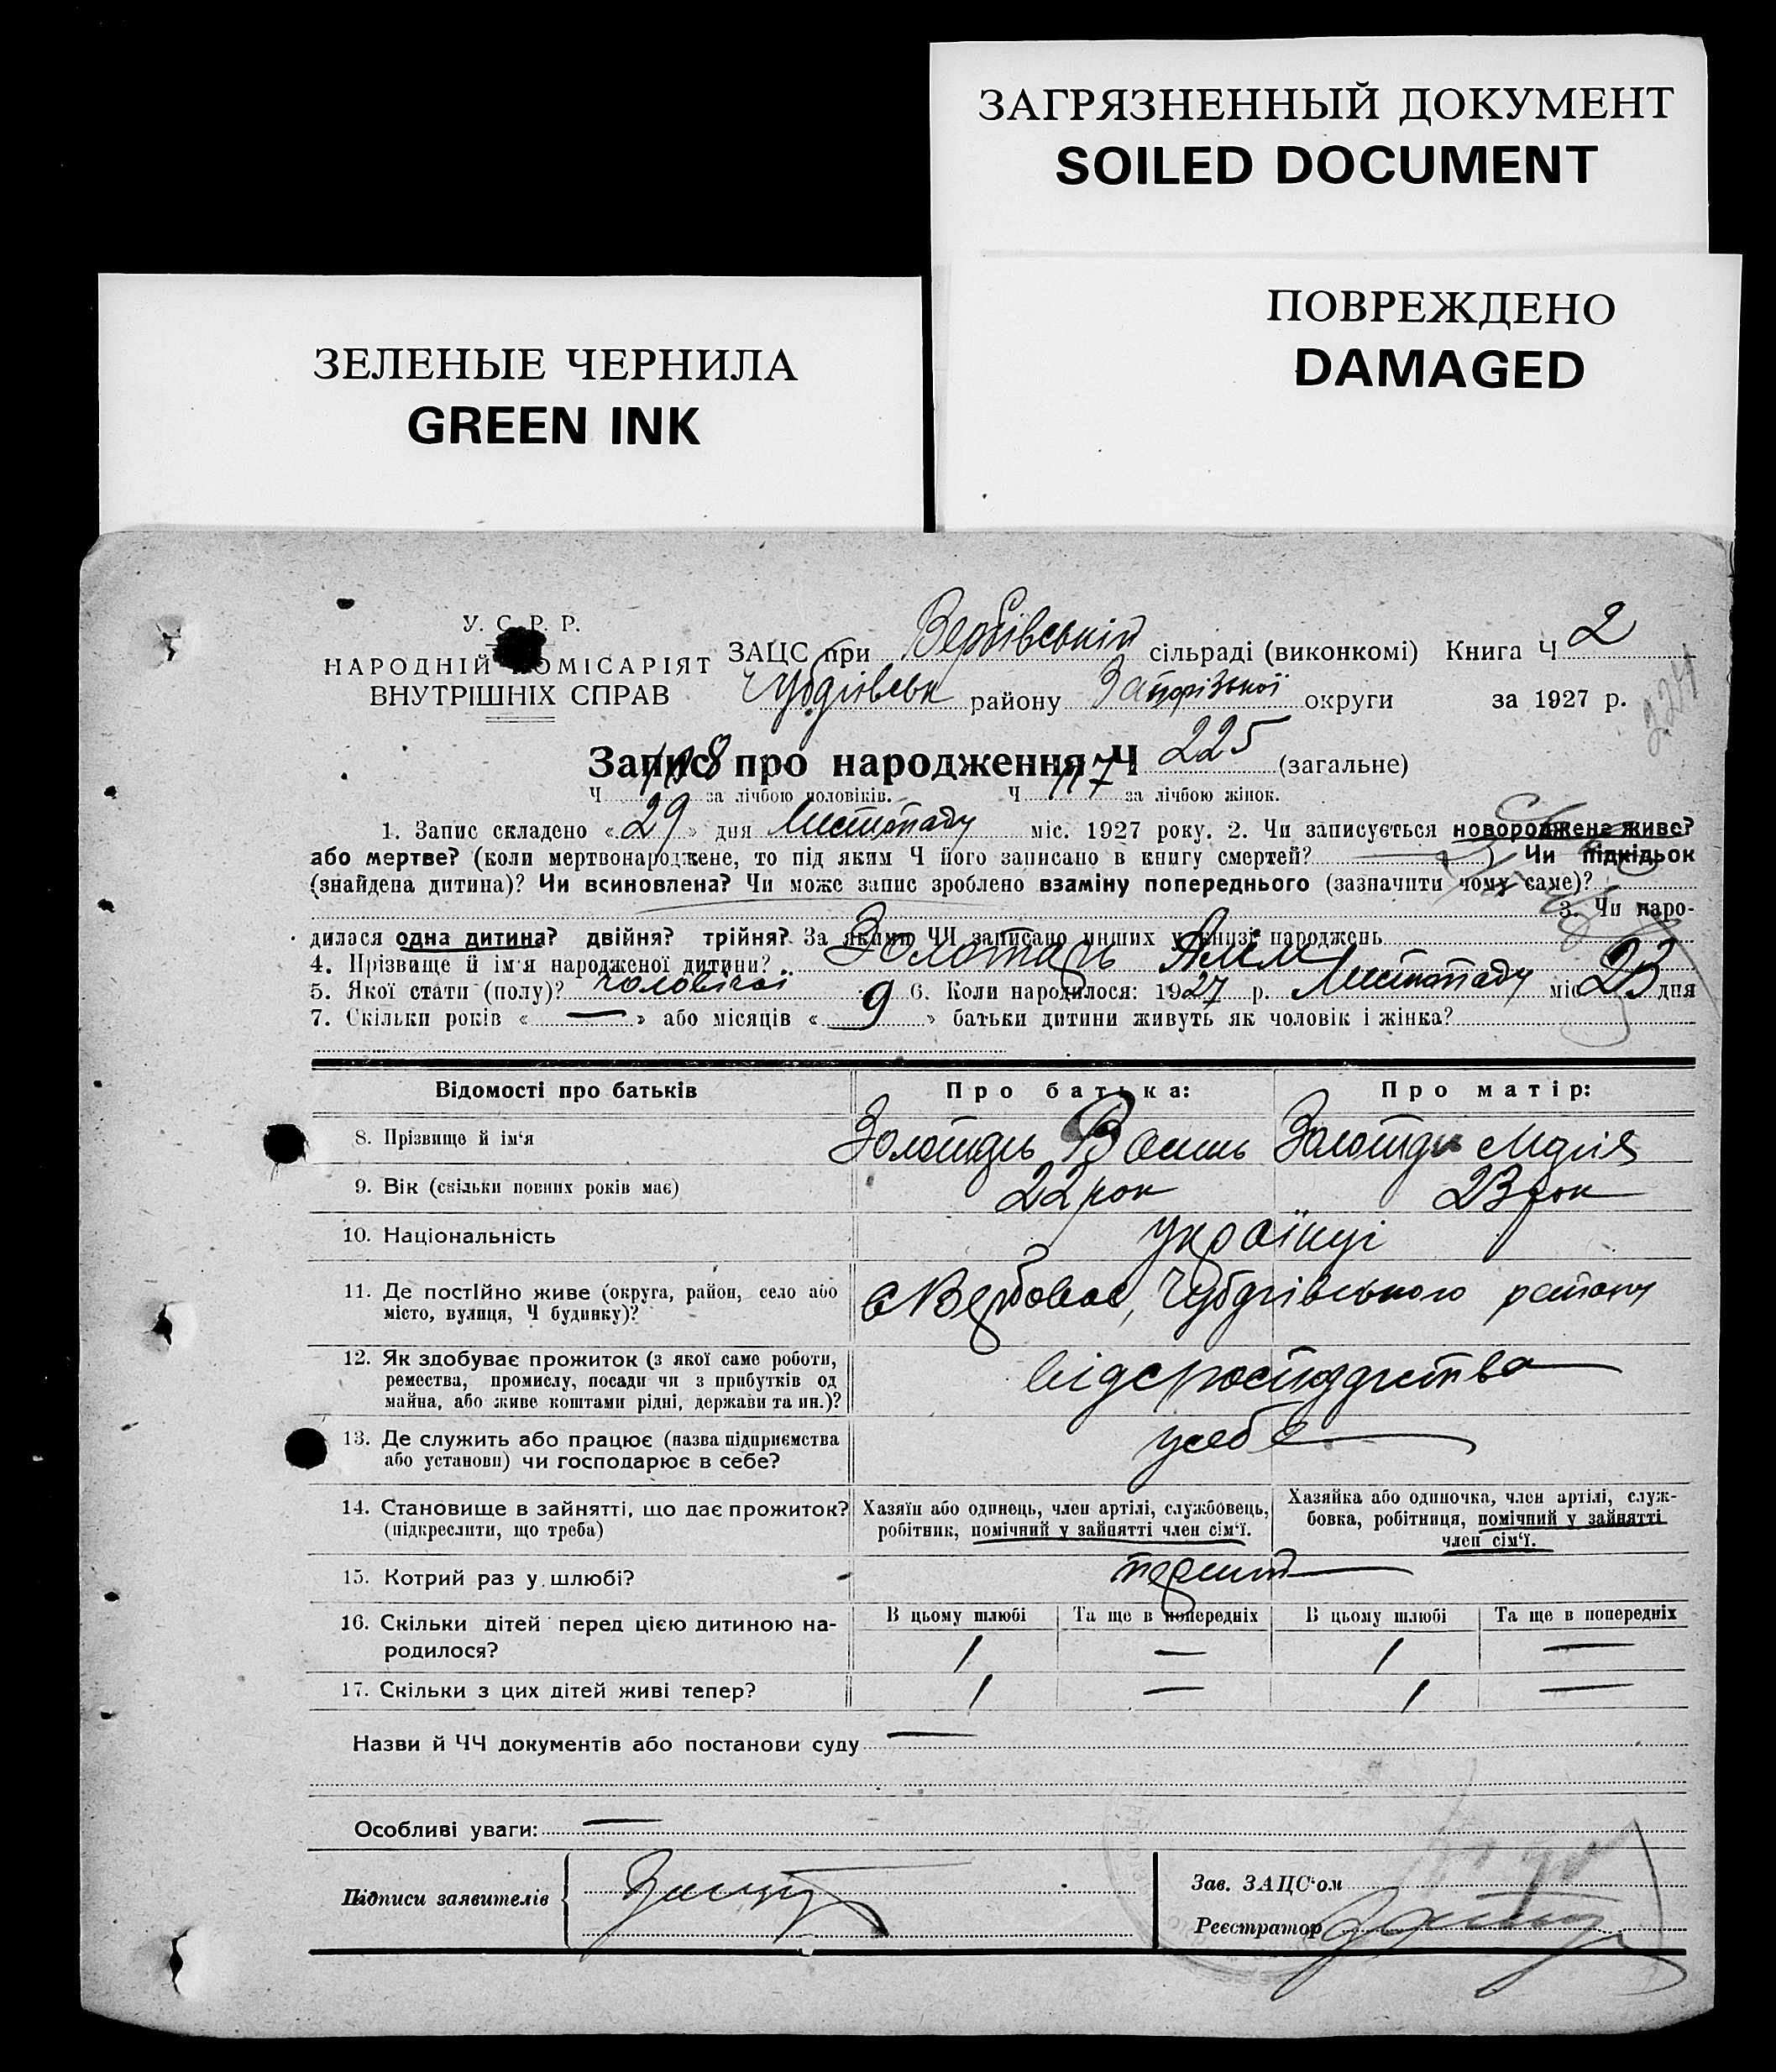 ЗАГРЯЗНЕННЫЙ ДОКУМЕНТ
SOILED DOCUMENT
ПОВРЕЖДЕНО
DAMAGED
ЗЕЛЕНЫЕ ЧЕРНИЛА
GREEN INK
У. С. Р. Р.
НАРОДНІЙ КОМІСАРІЯТ
ВНУТРІШНІХ СПРАВ
ЗАЦС при Вербівській сільраді (виконкомі) Книга Ч 2
району Запорізької округи за 1927 р.
224
Запис про народження Ч 225 (загальне)
Ч 108 за лічбою чоловіків. Ч 117 за лічбою жінок.
1. Запис складено «29» дня Листопаду міс. 1927 року. 2. Чи записується новороджене живе?
або мертве? (коли мертвонароджене, то під яким Ч його записано в книгу смертей? — ) Чи підкідьок
(знайдена дитина)? Чи всиновлена? Чи може запис зроблено взаміну попереднього (зазначити чому саме)?
3. Чи наро-
дилася одна дитина? двійня? трійня? За якими ЧЧ записано инших у книзі народжень
4. Прізвище й ім'я народженої дитини? Золотарь
5. Якої стати (полу)? чоловічої 6. Коли народилося: 1927 р. Листопаду міс 23 дня
7. Скільки років «—» або місяців «9» батьки дитини живуть як чоловік і жінка?
Відомості про батьків Про батька: Про матір:
8. Прізвище й ім'я Золотарь Василь Золотарь Марія
9. Вік (скільки повних років має) 22 рок 23 рок
10. Національність українці
11. Де постійно живе (округа, район, село або
місто, вулиця, Ч будинку)? с Вербовое, району
12. Як здобуває прожиток (з якої саме роботи,
ремества, промислу, посади чи з прибутків од
майна, або живе коштами рідні, держави та ин.)?
13. Де служить або працює (назва підприємства
або установи) чи господарює в себе? у себе
14. Становище в зайнятті, що дає прожиток?
(підкреслити, що треба)
Хазяїн або одинець, член артілі, службовець,
робітник, помічний у зайнятті член сім'ї.
Хазяйка або одиночка, член артілі, служ-
бовка, робітниця, помічний у зайнятті
член сім'ї.
15. Котрий раз у шлюбі? перший
16. Скільки дітей перед цією дитиною на-
родилося?
В цьому шлюбі Та ще в попередніх В цьому шлюбі Та ще в попередніх
1 — 1 —
17. Скільки з цих дітей живі тепер? 1 — 1 —
Назви й ЧЧ документів або постанови суду —
Особливі уваги: —
Підписи заявителів
Зав. ЗАЦС'ом
Реєстратор